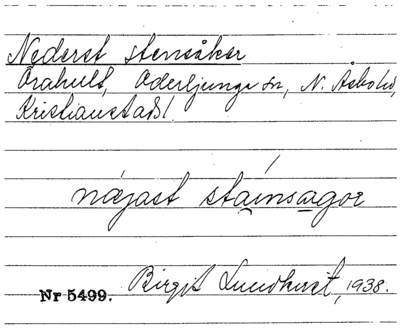 Nederst stensåker
Örahult, Oderljunga sn, N. Åsbo hd,
Kristianstads l.
nǝjast staínsagor
Nr 5499. Birgit Lundkvist, 1938.